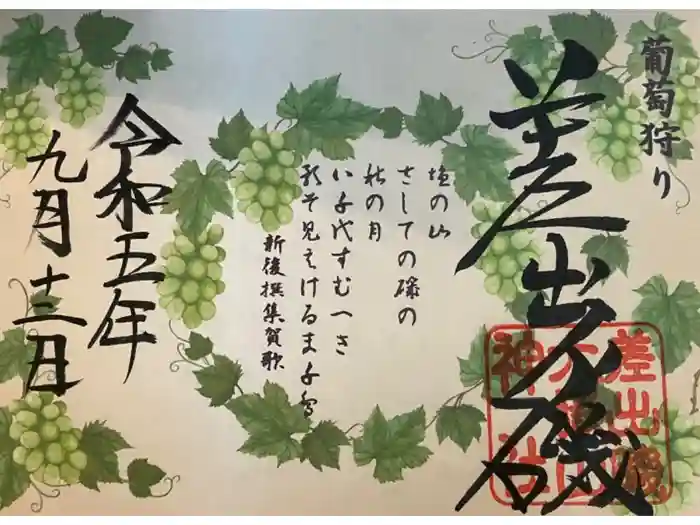 葡萄狩り
差出磯
差出磯
大嶽山
神社
塩の山
さしての磯の
秋の月
い千代すむへき
影そ見えけるま千鳥
新後撰集賀歌
令和五年
九月十二日